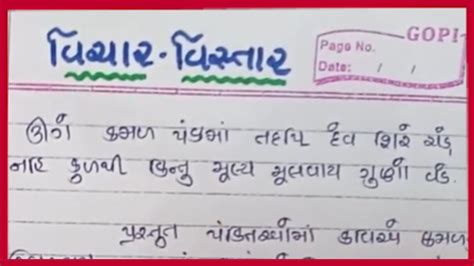 વિચાર-વિસ્તાર
GOPI
Page No.
Date: / /
ઊગે કમળ પંકમાં તદપિ દેવ શિરે ચડે
નહિ કુળથી કિન્તુ મૂલ્ય મૂલવાય ગુણો વડે.
પ્રસ્તુત પંક્તિઓમાં કવિએ કમળ